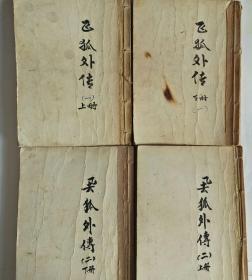 飞狐外传
(一)
上册
飞狐外传
下册
(一)
飛狐外傳
(二)
下册
飛狐外傳
(二)
上册